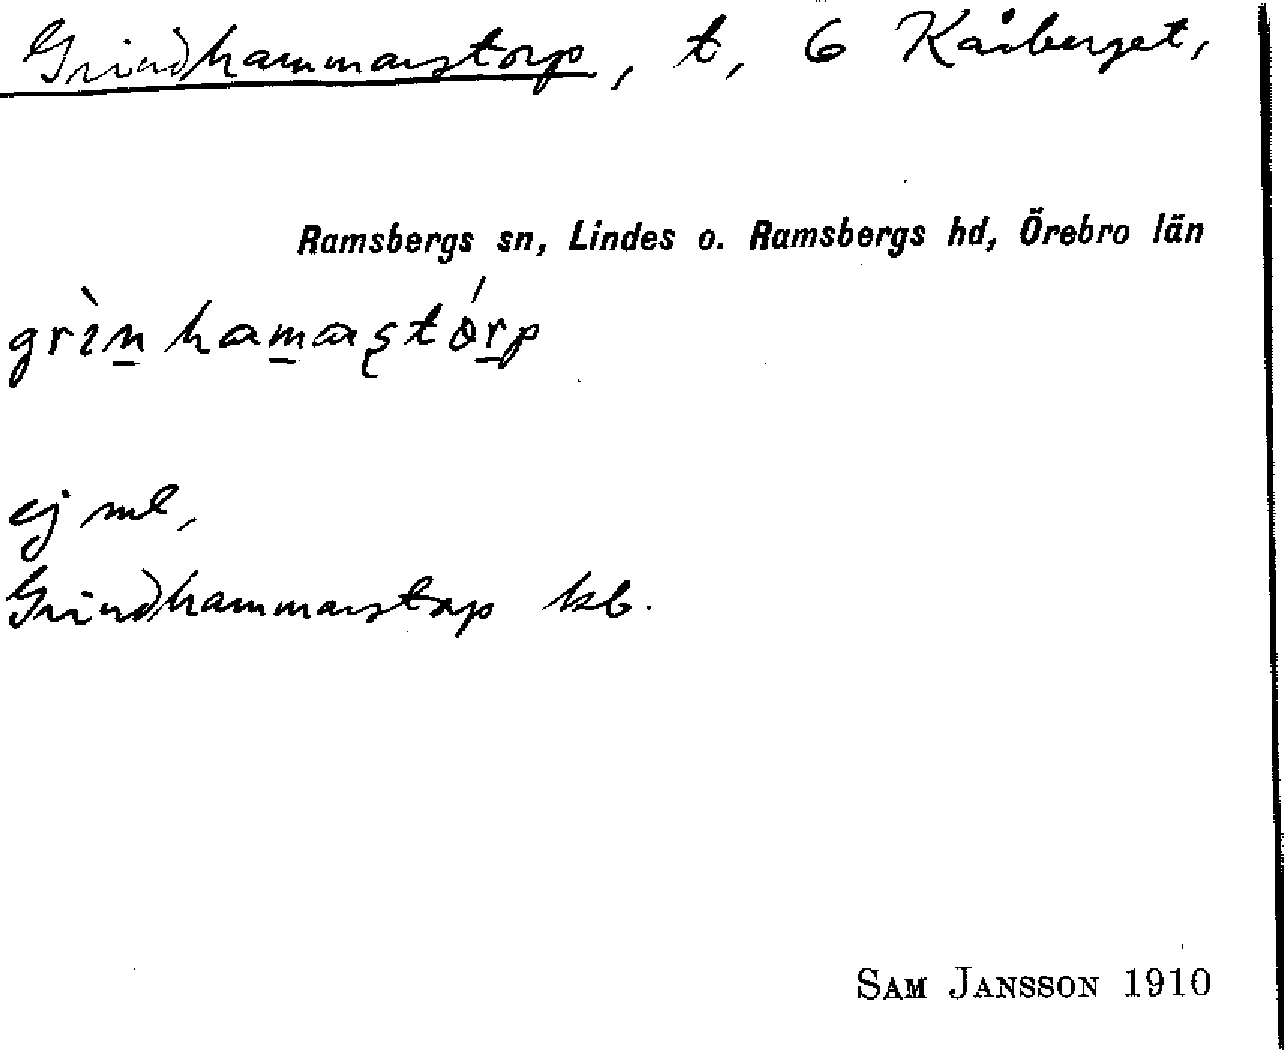 Grindhammarstorp, t, 6 Kåberget,
Ramsbergs sn, Lindes o. Ramsbergs hd, Örebro län
grìn hamaʂtórp
ej ml,
Grindhammarstorp kb.
SAM JANSSON 1910